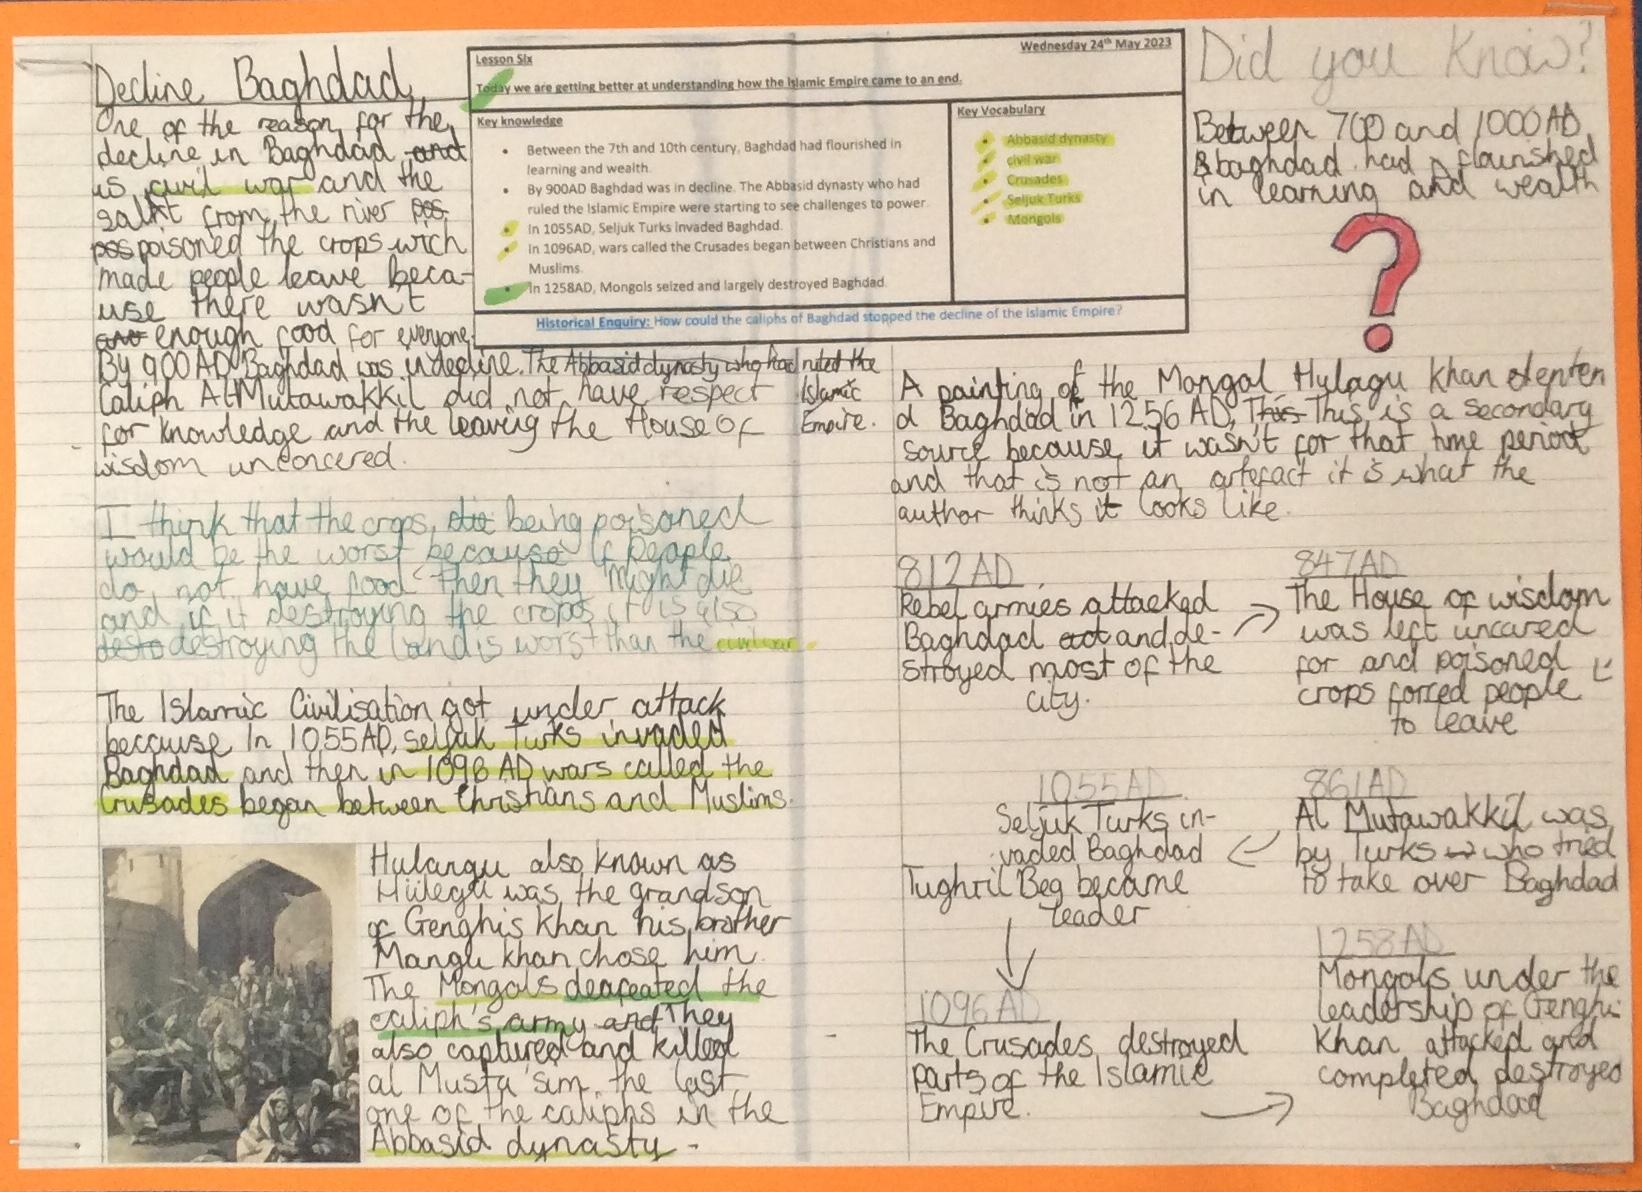 Decline Baghdad
One of the reason for the
decline in Baghdad and
is civil war and the
salkt from the river pos
pospoisoned the crops wich
made people leave beca-
use there wasn't
are enough food for everyone.
By 900AD Baghdad was in decline. The Abbasid dynasty who had ruled the
Islamic
Empire.
Caliph Al Mutawakkil did not have respect
for knowledge and the leaving the House of
wisdom unconcered.
I think that the crops being poisoned
would be the worst because if people
do not have food then they might die
and if it destroying the crops it is also
desto destroying the land is worst than the civil war.
The Islamic Civilisation got under attack
beccause In 1055AD, Seljuk Turks invaded
Baghdad and then in 1096 AD wars called the
Crusades began between Christians and Muslims.
Hulangu also known as
Hülegü was the grandson
of Genghis Khan his brother
Mangu khan chose him.
The Mongols deafeated the
caliph's army and They
also captured and killed
al Musta'sim, the last
one of the caliphs in the
Abbasid dynasty -
Lesson Six
Wednesday 24th May 2023
Today we are getting better at understanding how the Islamic Empire came to an end.
Key knowledge
• Between the 7th and 10th century, Baghdad had flourished in
learning and wealth.
• By 900AD Baghdad was in decline. The Abbasid dynasty who had
ruled the Islamic Empire were starting to see challenges to power.
• In 1055AD, Seljuk Turks invaded Baghdad.
• In 1096AD, wars called the Crusades began between Christians and
Muslims.
• In 1258AD, Mongols seized and largely destroyed Baghdad.
Key Vocabulary
• Abbasid dynasty
• civil war
• Crusades
• Seljuk Turks
• Mongols
Historical Enquiry: How could the caliphs of Baghdad stopped the decline of the Islamic Empire?
Did you Know?
Between 700 and 1000AD,
Bbaghdad had flourished
in learning and wealth
?
A painting of the Mongol Hulagu Khan
Baghdad in 1256 AD, This This is a secondary
source because it wasn't for that time period
and that is not an artefact it is what the
author thinks it looks like.
812AD
Rebel armies attacked
Baghdad act and de-
stroyed most of the
city.
847AD
The House of wisdom
was left uncared
for and poisoned
crops forced people
to leave
861AD
Al Mutawakkil was
by Turks w who tried
to take over Baghdad
1055AD
Seljuk Turks in-
vaded Baghdad
Tughril Beg became
leader
1096AD
The Crusades destroyed
parts of the Islamic
Empire.
1258AD
Mongols under the
leadership of Genghi
Khan attacked and
completed destroyed
Baghdad